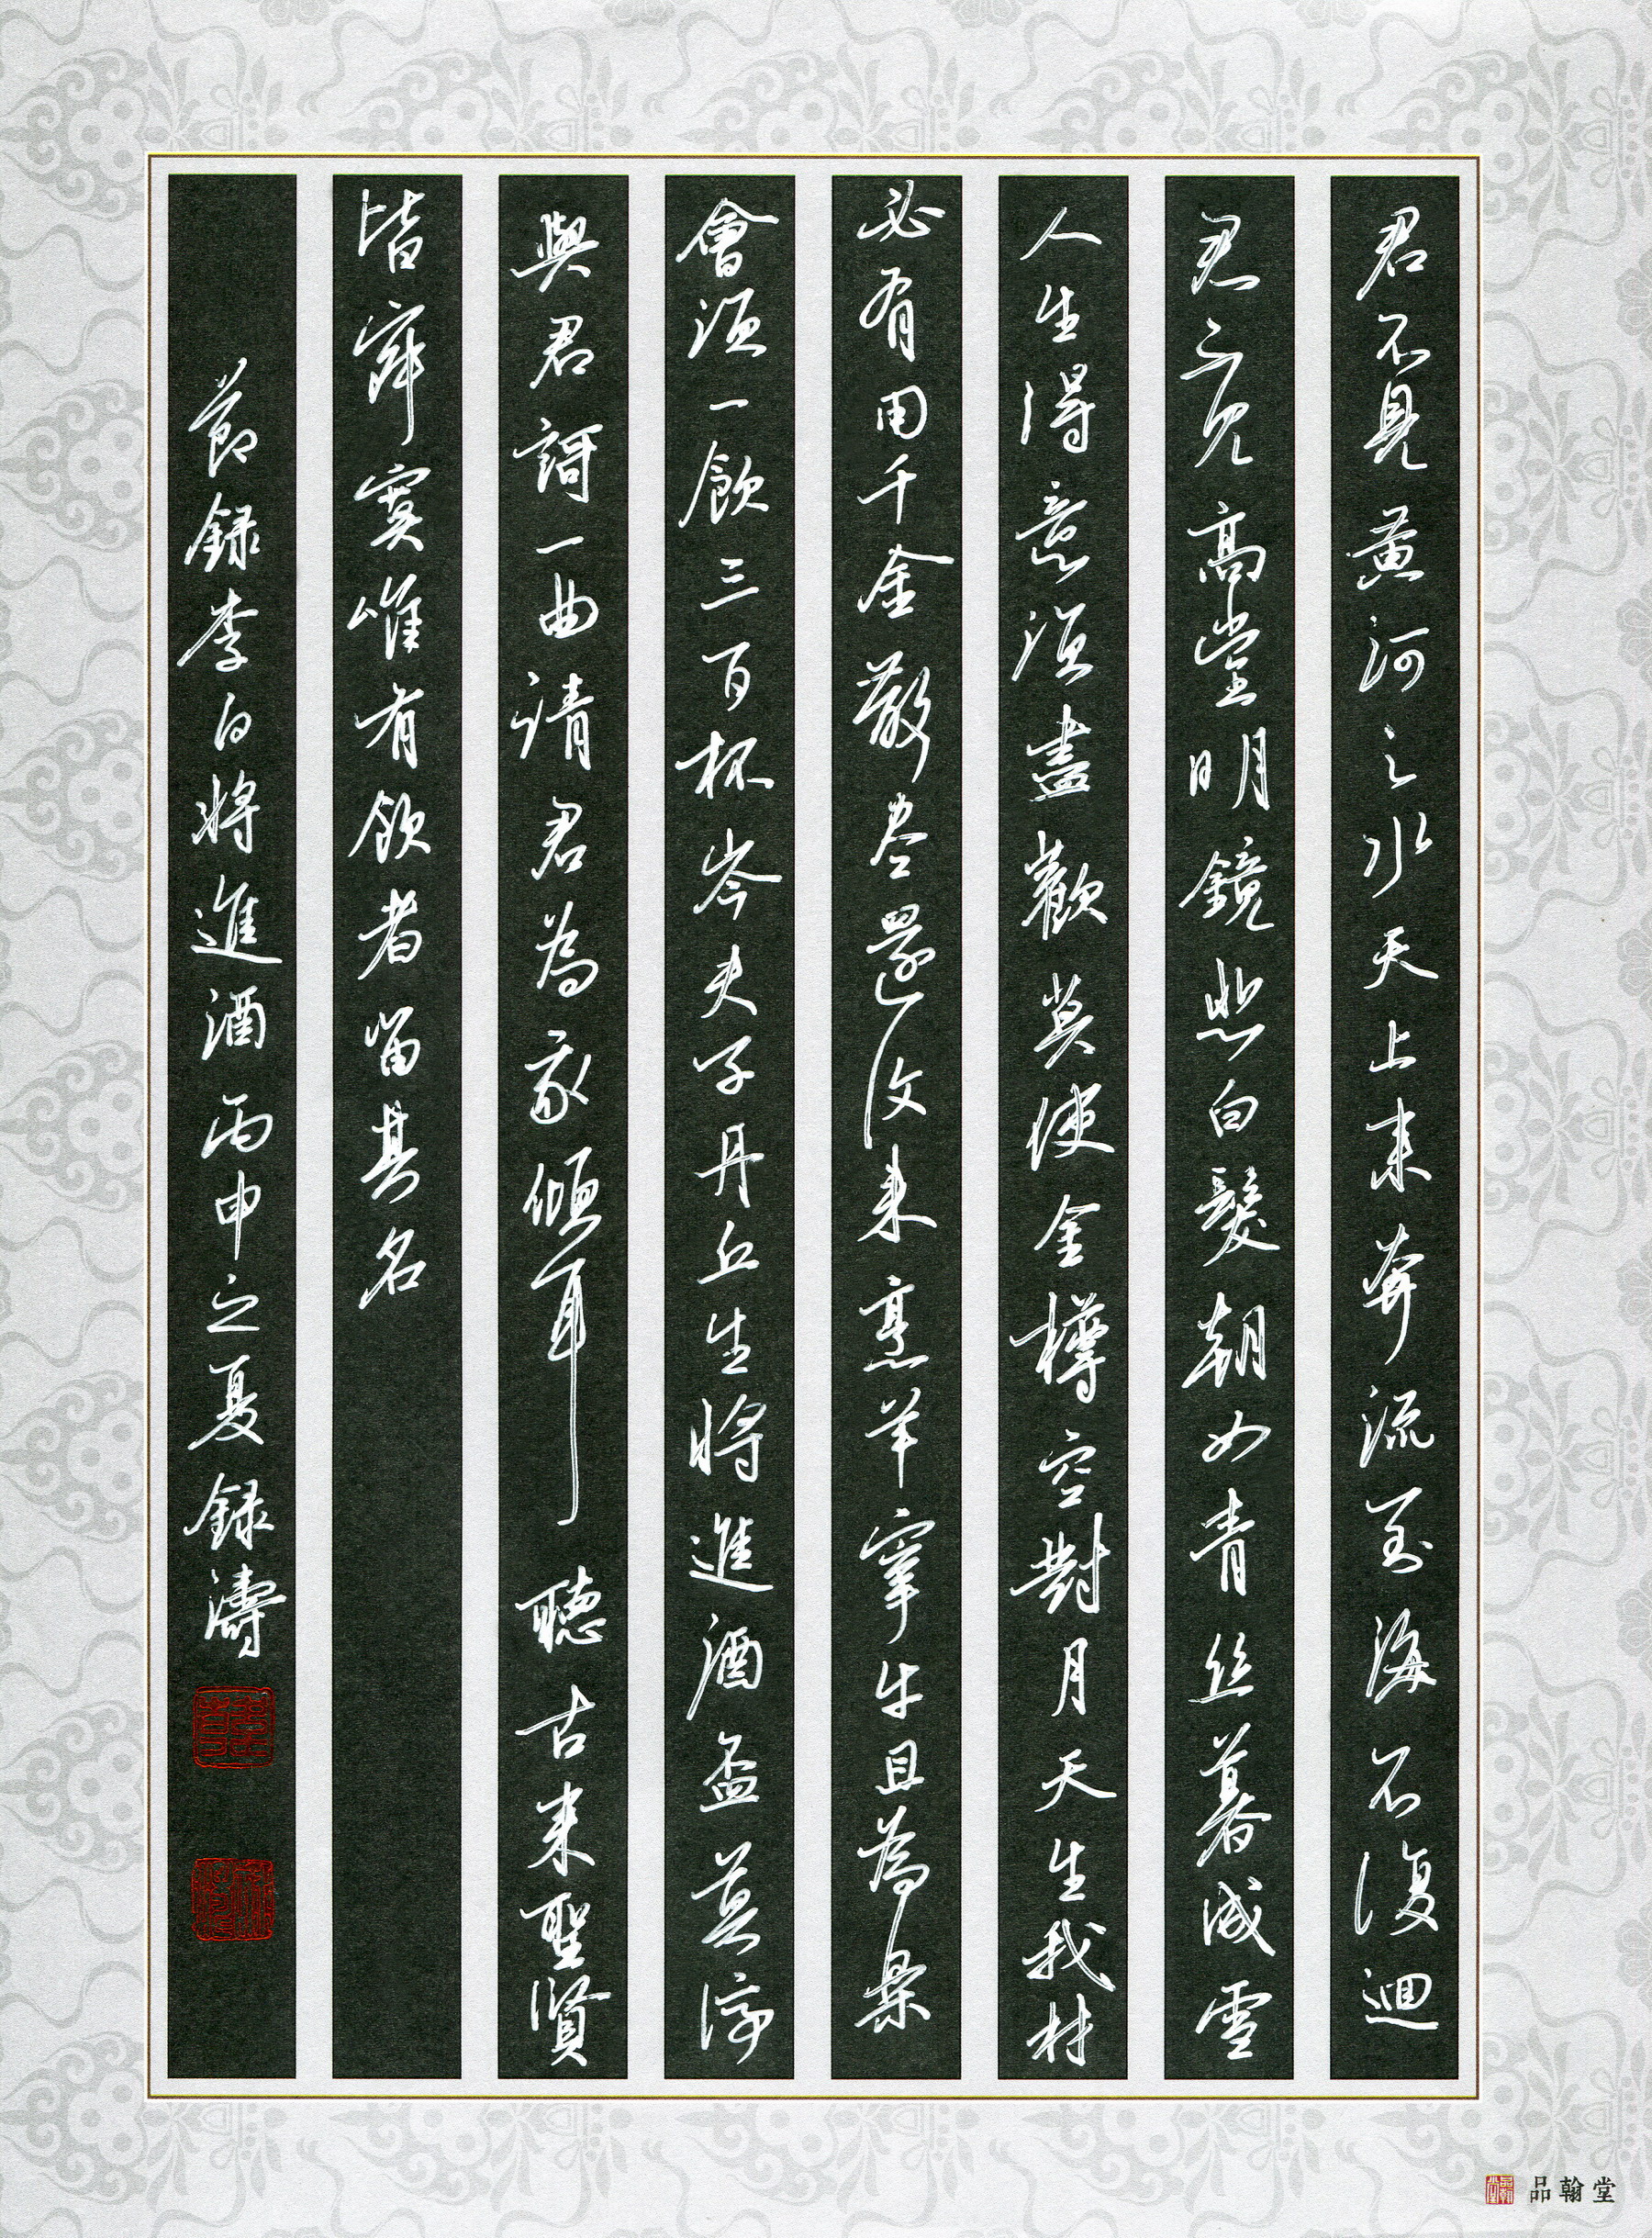 君不見黃河之水天上來奔流至海不復迴
君不見高堂明鏡悲白髮朝如青丝暮成雪
人生得意須盡歡莫使金樽空對月天生我材
必有用千金散尽還復來烹羊宰牛且為樂
會須一飲三百杯岑夫子丹丘生將進酒盃莫停
與君謌一曲請君為我傾耳聽古來聖賢
皆寂寞唯有飲者留其名
節録李白將進酒丙申之夏録濤
品翰堂